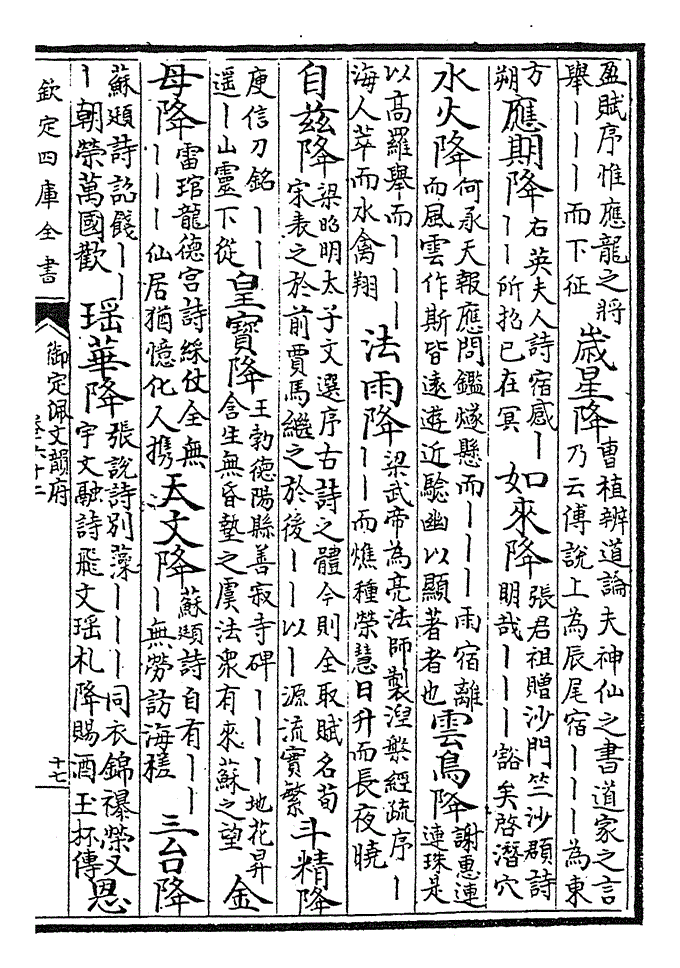 盈賦序惟應龍之將
舉丨丨丨而下征
歲星降
曹植辨道論夫神仙之書道家之言
乃云傅說上為辰尾宿丨丨丨為東
方
朔
應期降
右英夫人詩宿感丨
丨丨所招已在冥
如來降
張君祖贈沙門竺沙頵詩
明哉丨丨丨豁矣啓潛穴
水火降
何承天報應問鑑燧懸而丨丨丨雨宿離
而風雲作斯皆遠遊近驗幽以顯著者也
雲鳥降
謝惠連
連珠是
以高羅舉而丨丨丨
海人萃而水禽翔
法雨降
梁武帝為亮法師製湼槃經疏序丨
丨丨而燋種榮慧日升而長夜曉
自兹降
梁昭明太子文選序古詩之體今則全取賦名荀
宋表之於前賈馬繼之於後丨丨以丨源流實繁
斗精降
庾信刀銘丨丨
遥丨山靈下從
皇寶降
王勃德陽縣善寂寺碑丨丨丨地花昇
含生無昏墊之虞法衆有來蘇之望
金
母降
雷琯龍德宮詩綵仗全無
丨丨丨仙居猶憶化人携
天文降
蘇頲詩自有丨丨
丨無勞訪海槎
三台降
蘇頲詩詔餞丨丨
丨朝榮萬國歡
瑶華降
張說詩別藻丨丨丨同衣錦襮榮又
宇文融詩飛文瑶札降賜酒玉杯傳
恩
欽定四庫全書
御定佩文韻府
卷六十二
十七